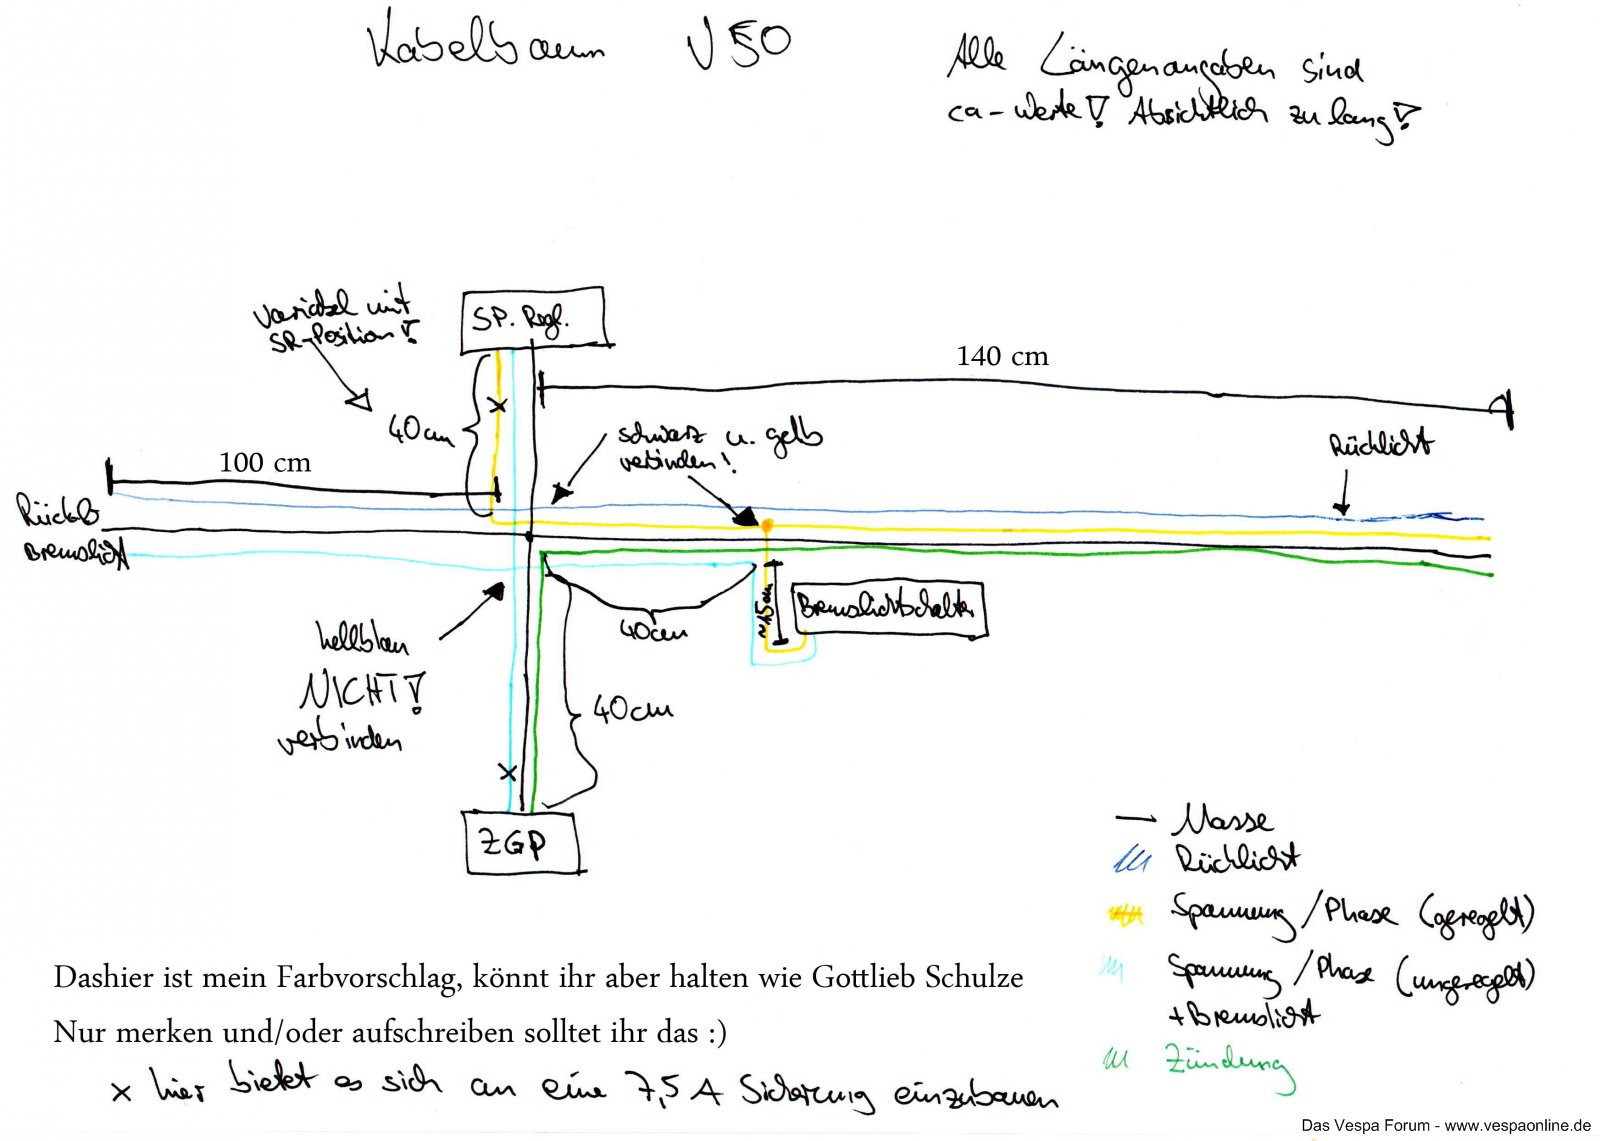 Kabelbaum V50
Alle Längenangaben sind
ca-Werte! Absichtlich zu lang!
Variabel mit
SR-Position!
SP. Regl.
140 cm
40cm
schwarz u. gelb
verbinden!
Rücklicht
100 cm
Rückli
Bremslicht
~15cm
Bremslichtschalter
40cm
hellblau
NICHT!
verbinden
40cm
x
x
ZGP
Masse
Rücklicht
Spannung/Phase (geregelt)
Spannung/Phase (ungeregelt)
+Bremslicht
Zündung
Dashier ist mein Farbvorschlag, könnt ihr aber halten wie Gottlieb Schulze
Nur merken und/oder aufschreiben solltet ihr das :)
x hier bietet es sich an eine 7,5 A Sicherung einzubauen
Das Vespa Forum - www.vespaonline.de